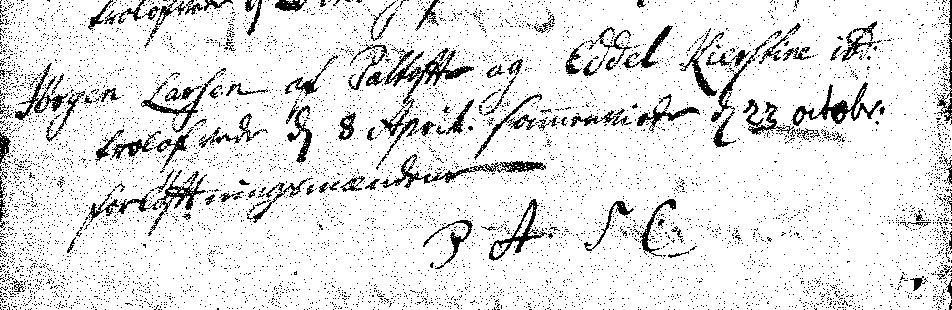 trolofvede d
Jörgen Larsen af Paltofte og Eddel Kierstine ibd:
trolofvede d 8 April. Sammenviede d 23 octobr:
forlöftningsmændene
P A S C